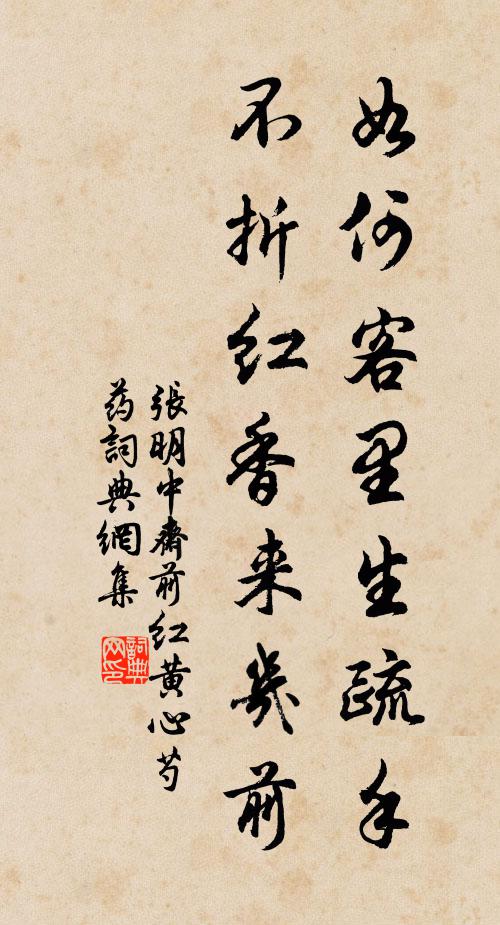 如何客里生疏手
不折红香来几前
張明中齋前红黄心芍
药詞典網集
詞典
网印